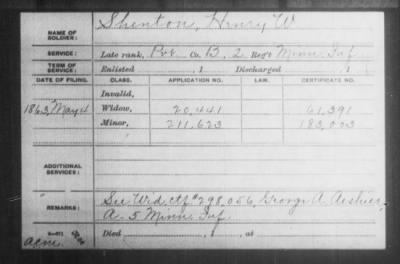 NAME OF SOLDIER: Shenton, Henry W
SERVICE: Late rank, Pvt Co. B, 2 Reg't Minn. Inf
TERM OF SERVICE: Enlisted , 1 Discharged , 1
DATE OF FILING. CLASS. APPLICATION NO. LAW. CERTIFICATE NO.
Invalid,
1863, May 4 Widow, 20,441 61,391
Minor, 211,623 183,003
ADDITIONAL SERVICES:
REMARKS: See Wid. ctf # 298,056, George A.
A-5 Minn. Inf.
Died , 1 , at